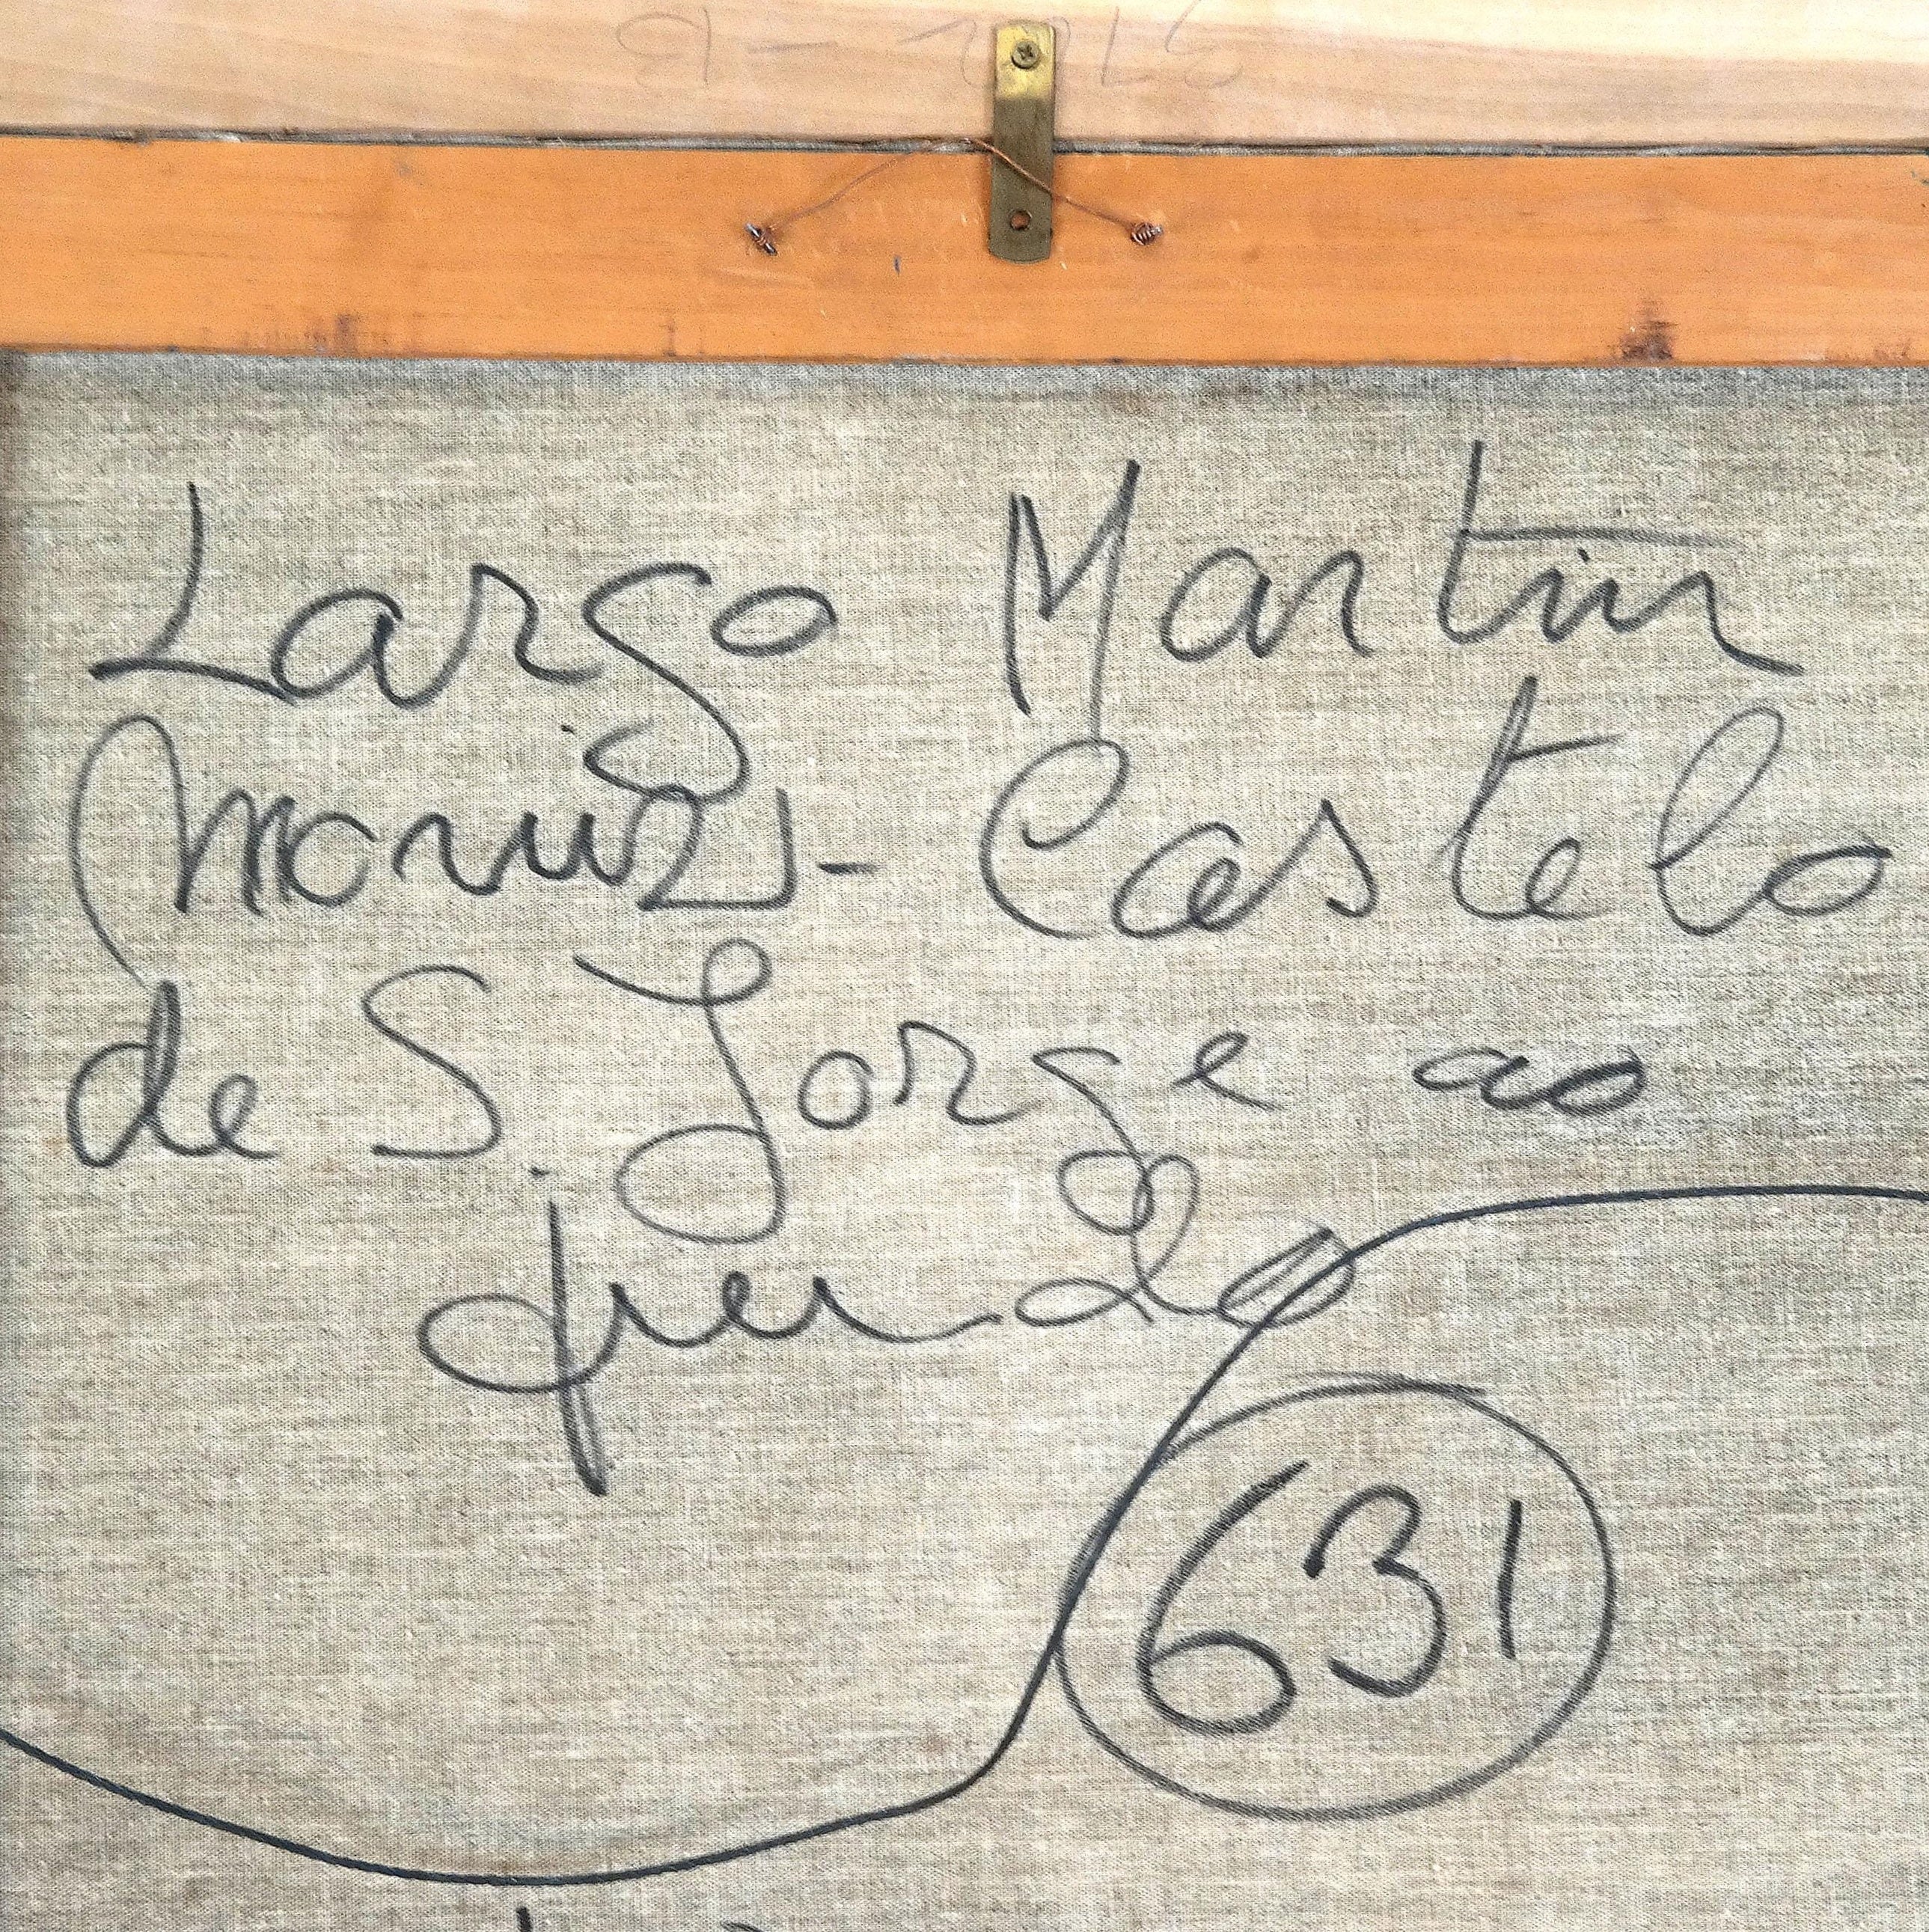 Largo Martin
Moniz - Castelo
de S. Jorge ao
fundo
631